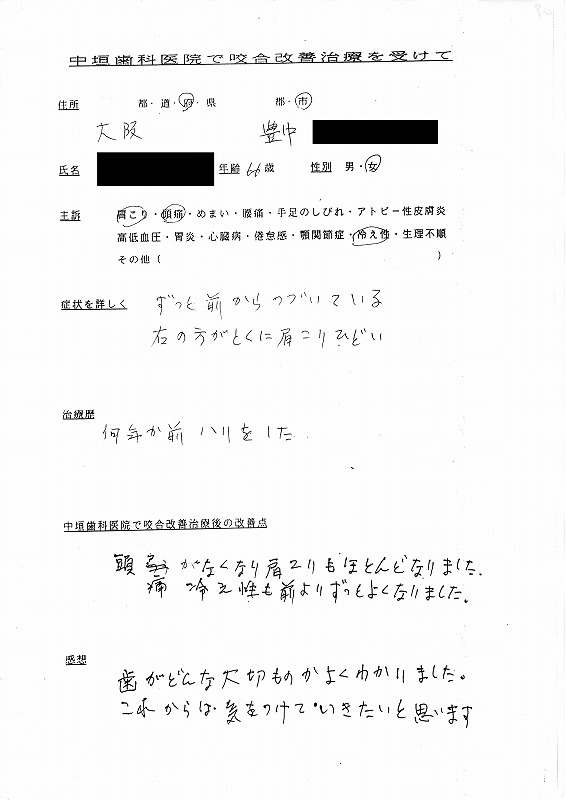 中垣歯科医院で咬合改善治療を受けて
住所 都・道・府・県 郡・市
大阪 豊中
氏名 年齢 66歳 性別 男・女
主訴 肩こり・頭痛・めまい・腰痛・手足のしびれ・アトピー性皮膚炎
高低血圧・胃炎・心臓病・倦怠感・顎関節症・冷え性・生理不順
その他( )
症状を詳しく ずっと前からつづいている
右の方がとくに肩こりひどい
治療歴
何年か前 ハリをした
中垣歯科医院で咬合改善治療後の改善点
頭痛がなくなり肩こりもほとんどなりました。
冷え性も前よりずっとよくなりました。
感想
歯がどんな大切ものかよくわかりました。
これからは気をつけていきたいと思います